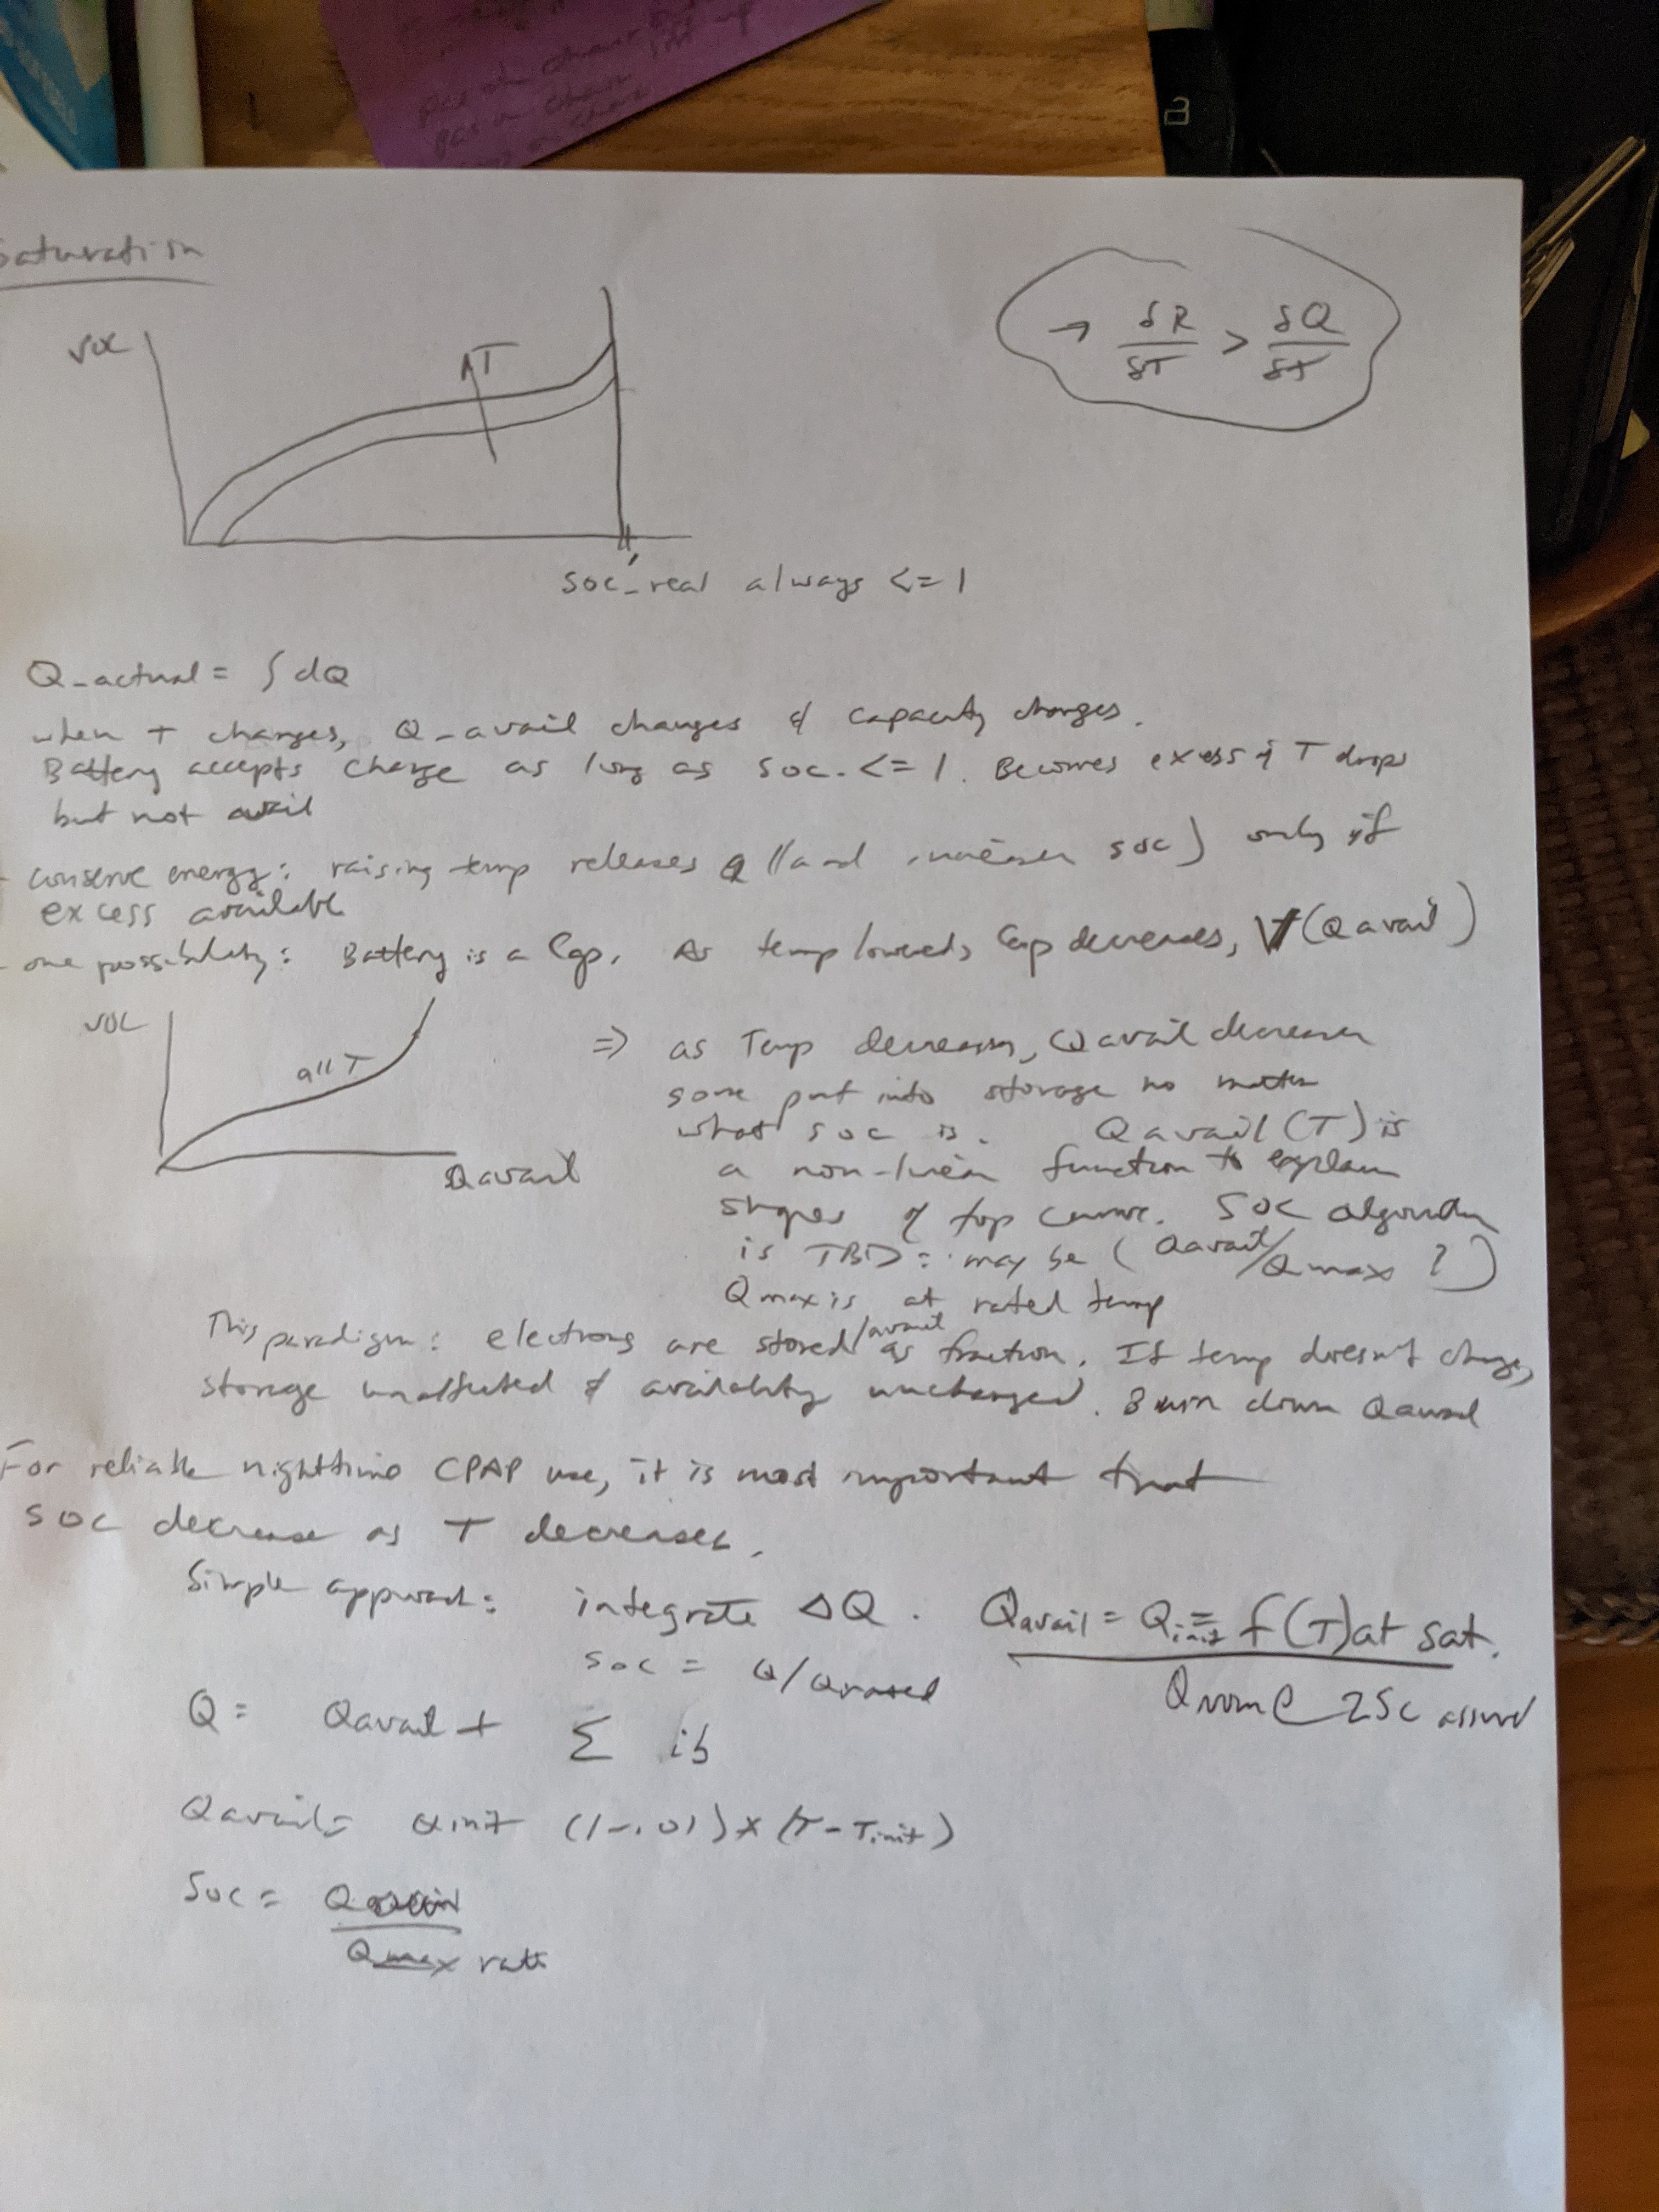 Saturation
VOC
↑T
→ δR/δT > δQ/δT
1
soc_real always <= 1
Q_actual = ∫ dQ
when T changes, Q_avail changes & capacity changes.
Battery accepts charge as long as soc <= 1. Becomes excess if T drops
but not avail
- conserve energy: raising temp releases q (and increases soc) only if
excess available
- one possibility: Battery is a Cap. As temp lowers, Cap decreases, (Qavail)
VOC
all T
Qavail
⇒ as Temp decreases, Qavail decreases
some put into storage no matter
what soc is. Qavail(T) is
a non-linear function to explain
shapes of top curve. SOC algorithm
is TBD: may be (Qavail/Qmax ?)
Qmax is at rated temp
This paradigm: electrons are stored/avail as fraction. If temp doesn't change,
storage unaffected & availability unchanged. down Qavail
For reliable nighttime CPAP use, it is most important that
SOC decrease as T decreases.
Simple approach: integrate ΔQ. Qavail = Qinit = f(T) at sat.
soc = Q/Qrated
Qnom @ 25c assumed
Q = Qavail + Σ ib
Qavail = Qinit (1-.01) × (T - Tinit)
Soc =
Qmax rate